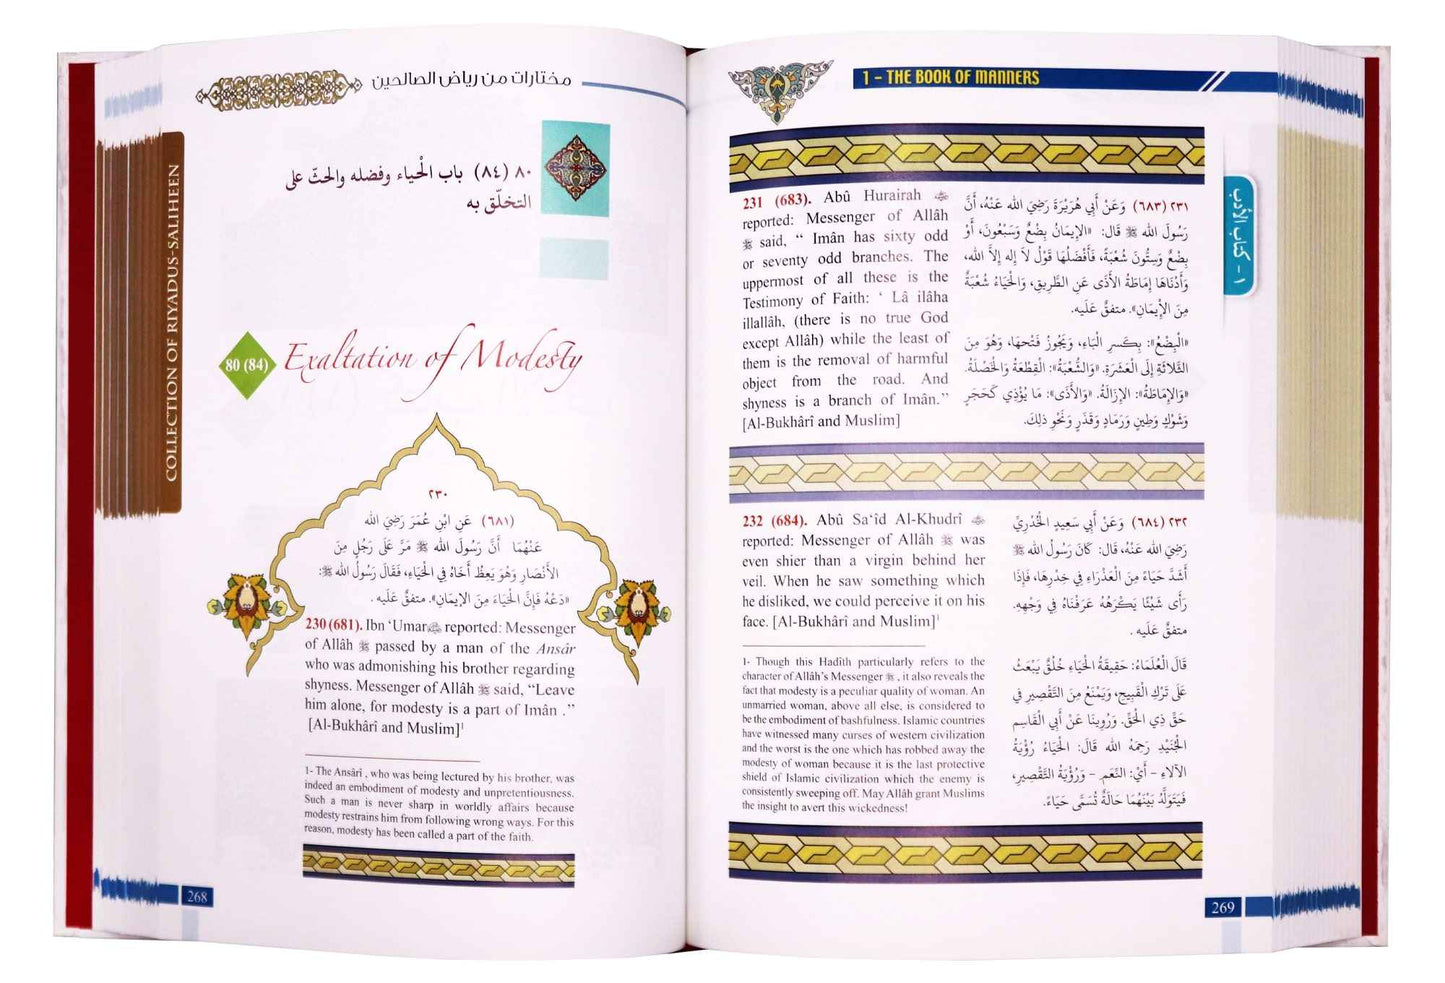 مختارات من رياض الصالحين
COLLECTION OF RIYADUS-SALIHEEN
٨٠ (٨٤) باب الْحياء وفضله والحثّ على
التخلّق به
80 (84)
Exaltation of Modesty
٢٣٠
(٦٨١) عَنِ ابْنِ عُمَرَ رَضِيَ الله
عَنْهُمَا أَنَّ رَسُولَ الله ﷺ مَرَّ عَلَى رَجُلٍ مِنَ
الأَنْصَارِ وَهُوَ يَعِظُ أَخَاهُ فِي الْحَيَاءِ، فَقَالَ رَسُولُ الله ﷺ:
«دَعْهُ فَإِنَّ الْحَيَاءَ مِنَ الإِيمَانِ». متفقٌ عَليه.
230 (681). Ibn ‘Umar reported: Messenger
of Allâh ﷺ passed by a man of the Ansâr
who was admonishing his brother regarding
shyness. Messenger of Allâh ﷺ said, “Leave
him alone, for modesty is a part of Imân .”
[Al-Bukhârî and Muslim]¹
1- The Ansârî , who was being lectured by his brother, was
indeed an embodiment of modesty and unpretentiousness.
Such a man is never sharp in worldly affairs because
modesty restrains him from following wrong ways. For this
reason, modesty has been called a part of the faith.
268
1 – THE BOOK OF MANNERS
١ - كتاب الأدب
231 (683). Abû Hurairah
reported: Messenger of Allâh
ﷺ said, “ Imân has sixty odd
or seventy odd branches. The
uppermost of all these is the
Testimony of Faith: ‘ Lâ ilâha
illallâh, (there is no true God
except Allâh) while the least of
them is the removal of harmful
object from the road. And
shyness is a branch of Imân.”
[Al-Bukhârî and Muslim]
٢٣١ (٦٨٣) وَعَنْ أَبِي هُرَيْرَةَ رَضِيَ الله عَنْهُ، أَنَّ
رَسُولَ الله ﷺ قَالَ: «الإِيمَانُ بِضْعٌ وَسَبْعُونَ، أَوْ
بِضْعٌ وَسِتُّونَ شُعْبَةً، فَأَفْضَلُهَا قَوْلُ لاَ إِله إِلاَّ الله،
وَأَدْنَاهَا إِمَاطَةُ الأَذَى عَنِ الطَّرِيقِ، وَالْحَيَاءُ شُعْبَةٌ
مِنَ الإِيمَانِ». متفقٌ عَليه.
«الْبِضْعُ»: بِكَسرِ الْبَاءِ، وَيَجُوزُ فَتْحُهَا، وَهُوَ مِنَ
الثَّلاثَةِ إِلَى الْعَشَرَةِ. «وَالشُّعْبَةُ»: الْقِطْعَةُ وَالْخَصْلَةُ.
«وَالإِمَاطَةُ»: الإِزَالَةُ. «وَالأَذَى»: مَا يُؤْذِي كَحَجَرٍ
وَشَوْكٍ وَطِينٍ وَرَمَادٍ وَقَذَرٍ وَنَحْوِ ذلِكَ.
232 (684). Abû Sa‘îd Al-Khudrî
reported: Messenger of Allâh ﷺ was
even shier than a virgin behind her
veil. When he saw something which
he disliked, we could perceive it on his
face. [Al-Bukhârî and Muslim]¹
1- Though this Hadîth particularly refers to the
character of Allâh’s Messenger ﷺ , it also reveals the
fact that modesty is a peculiar quality of woman. An
unmarried woman, above all else, is considered to
be the embodiment of bashfulness. Islamic countries
have witnessed many curses of western civilization
and the worst is the one which has robbed away the
modesty of woman because it is the last protective
shield of Islamic civilization which the enemy is
consistently sweeping off. May Allâh grant Muslims
the insight to avert this wickedness!
٢٣٢ (٦٨٤) وَعَنْ أَبِي سَعِيدٍ الْخُدْرِيِّ
رَضِيَ الله عَنْهُ، قَالَ: كَانَ رَسُولُ الله ﷺ
أَشَدَّ حَيَاءً مِنَ الْعَذْرَاءِ فِي خِدْرِهَا، فَإِذَا
رَأَى شَيْئًا يَكْرَهُهُ عَرَفْنَاهُ فِي وَجْهِهِ.
متفقٌ عَليه .
قَالَ الْعُلَمَاءُ: حَقِيقَةُ الْحَيَاءِ خُلُقٌ يَبْعَثُ
عَلَى تَرْكِ الْقَبِيحِ، وَيَمْنَعُ مِنَ التَّقْصِيرِ فِي
حَقِّ ذِي الْحَقِّ. وَرُوِينَا عَنْ أَبِي الْقَاسِمِ
الْجُنَيْدِ رَحِمَهُ الله قَالَ: الْحَيَاءُ رُؤْيَةُ
الآلاءِ – أَيْ: النِّعَمِ – وَرُؤْيَةُ التَّقْصِيرِ،
فَيَتَوَلَّدُ بَيْنَهُمَا حَالَةٌ تُسَمَّى حَيَاءً.
269